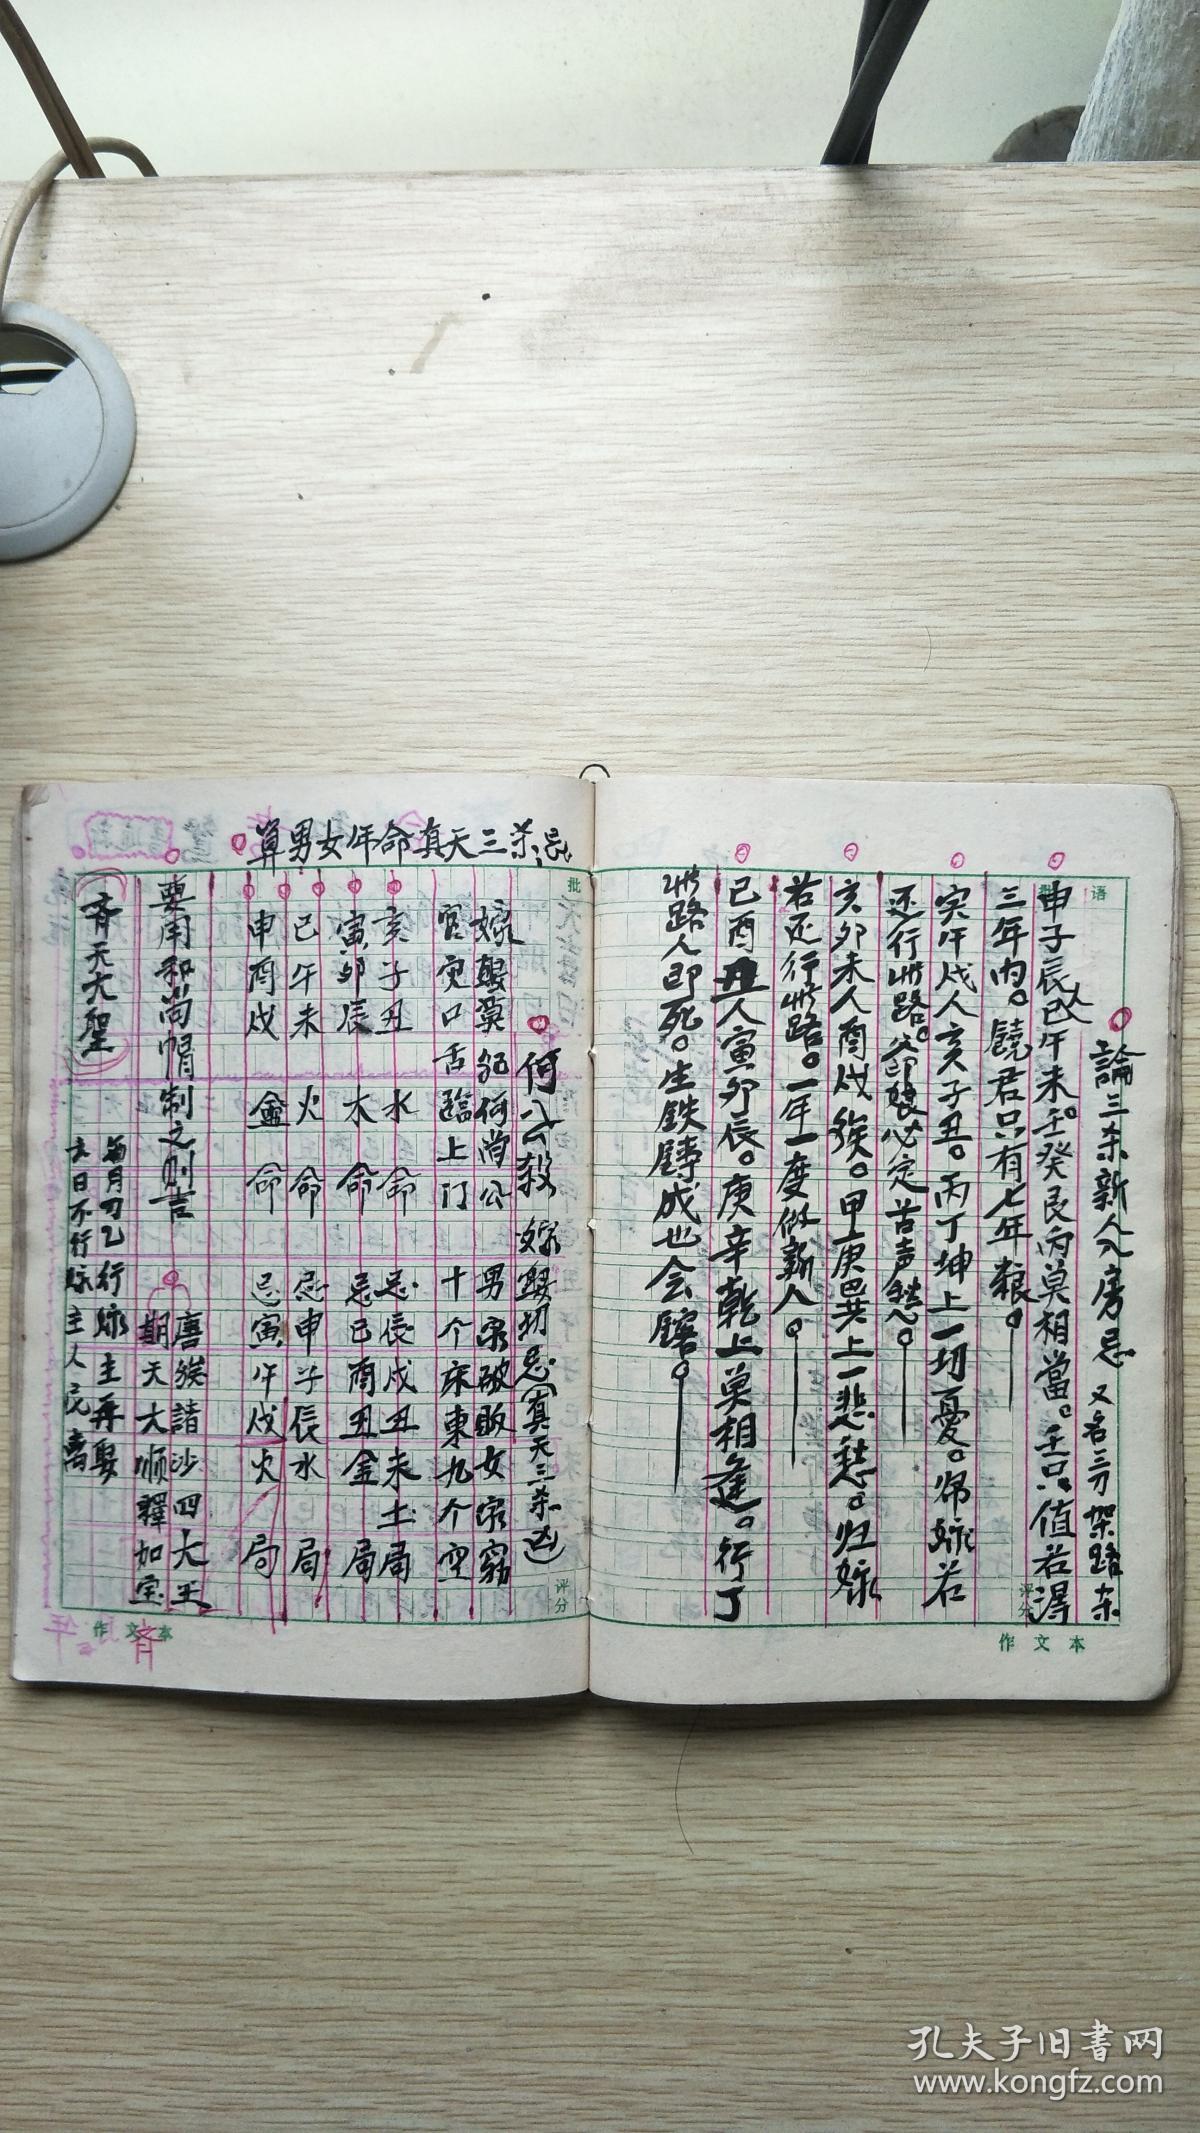 論三杀新人入房忌 又名三方架路杀
申子辰人巳午未。壬癸艮丙莫相當。壬只值若得
三年内。饒君只有七年粮。
寅午戌人亥子丑。丙丁坤上一切憂。歸嫁若
还行此路。爷娘必定苦声愁。
亥卯未人酉戌矣。甲庚巽上一悲愁。归嫁
若还行此路。一年一度做新人。
巳酉丑人寅卯辰。庚辛乾上莫相逢。行了
此路人即死。生鉄鑄成也会鎔。
算男女年命真天三杀忌
何公殺 嫁娶切忌(寘天三杀凶)
嫁娶莫犯何尚公 男家破敗女家窮
官灾口舌臨上门 十个床東九个空
亥子丑 水命 忌辰戌丑未土局
寅卯辰 木命 忌巳酉丑金局
巳午未 火命 忌申子辰水局
申酉戌 金命 忌寅午戌火局
唐矣請沙四大王
專用和尚帽制之則吉 期天大顺釋如宝
齐天大聖
每月初乙行嫁主再娶
六日不行嫁主人民离
批语
评分
作文本
批
评分
作文本
孔夫子旧书网
www.kongfz.com